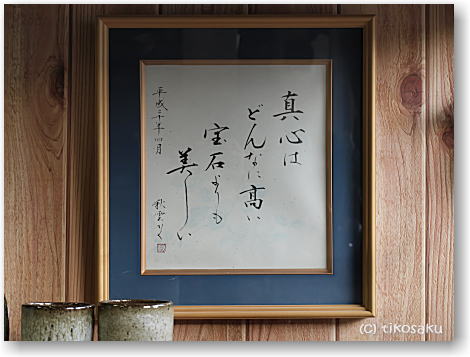 真心は
どんなに高い
宝石よりも
美しい
平成二十年四月
秋雲かく
(c) tikosaku